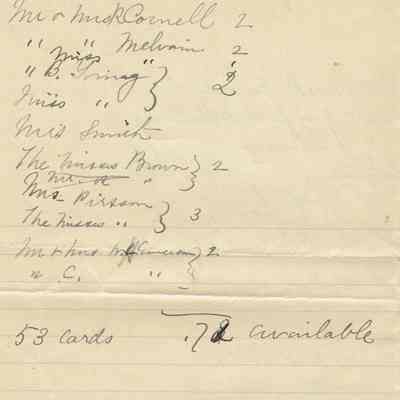 Mr & Mrs R Cornell 2
" " Melvain 2
Miss
" B. " } 2
Miss " }
Mrs Smith
The Misses Brown } 2
Mr. & " }
Mrs Pirsson } 3
The Misses " }
Mr & Mrs Cameron } 2
" C. " }
53 cards 72 available